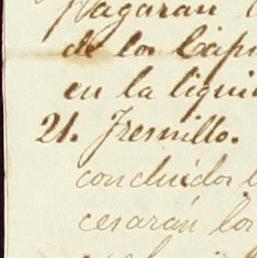 Pagarán
de los Cap
en la liqui
21. Fresnillo.
concluidos l
cesarán los